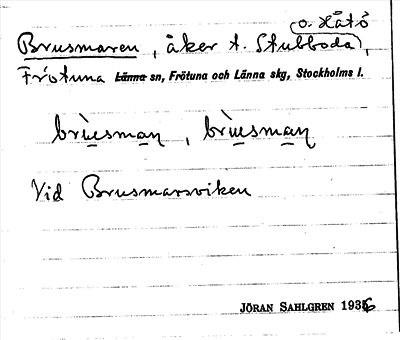 o. Håtö
Brusmaren, åker t. Stubboda,
Frötuna Länna sn, Frötuna och Länna skg, Stockholms l.
brùsmaɳ, brùsmaɳ
Vid Brusmarsviken
JÖRAN SAHLGREN 1936